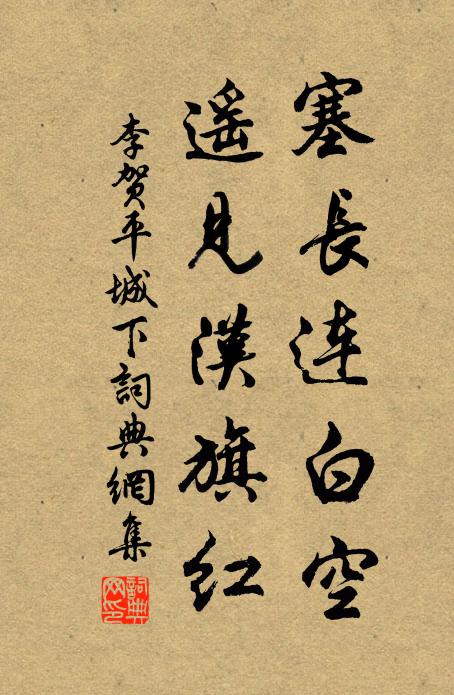 塞長連白空
遥見漢旗紅
李賀平城下詞典網集
詞典网印